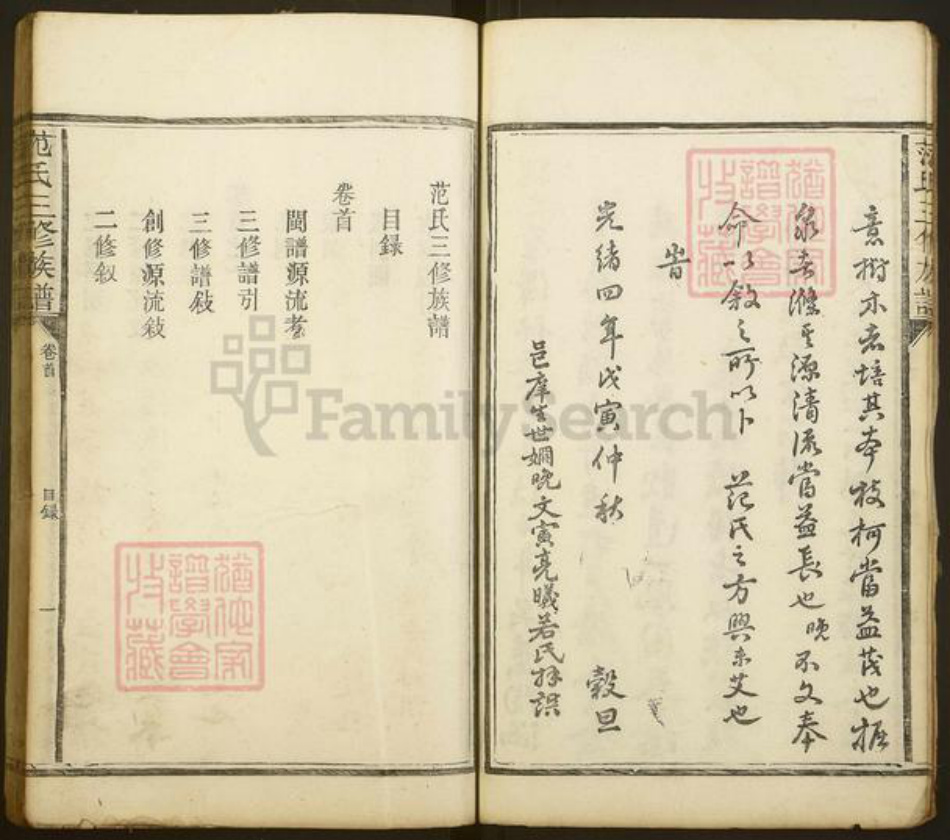 意樹木者培其本枝柯當益茂也握
泉者滌其源清流當益長也晚不文奉
命以敘之所以卜 范氏之方興未艾也
旹
光緒四年戊寅仲秋 穀旦
邑庠生世姻晚文寅亮曦若氏拜譔
范氏三修族譜
目錄
卷首
閩譜源流考
三修譜引
三修譜敍
創修源流敍
二修叙
范氏三修族譜 卷首 目錄 一
范氏三修族譜
譜學會
收藏
譜學會
收藏
FamilySearch